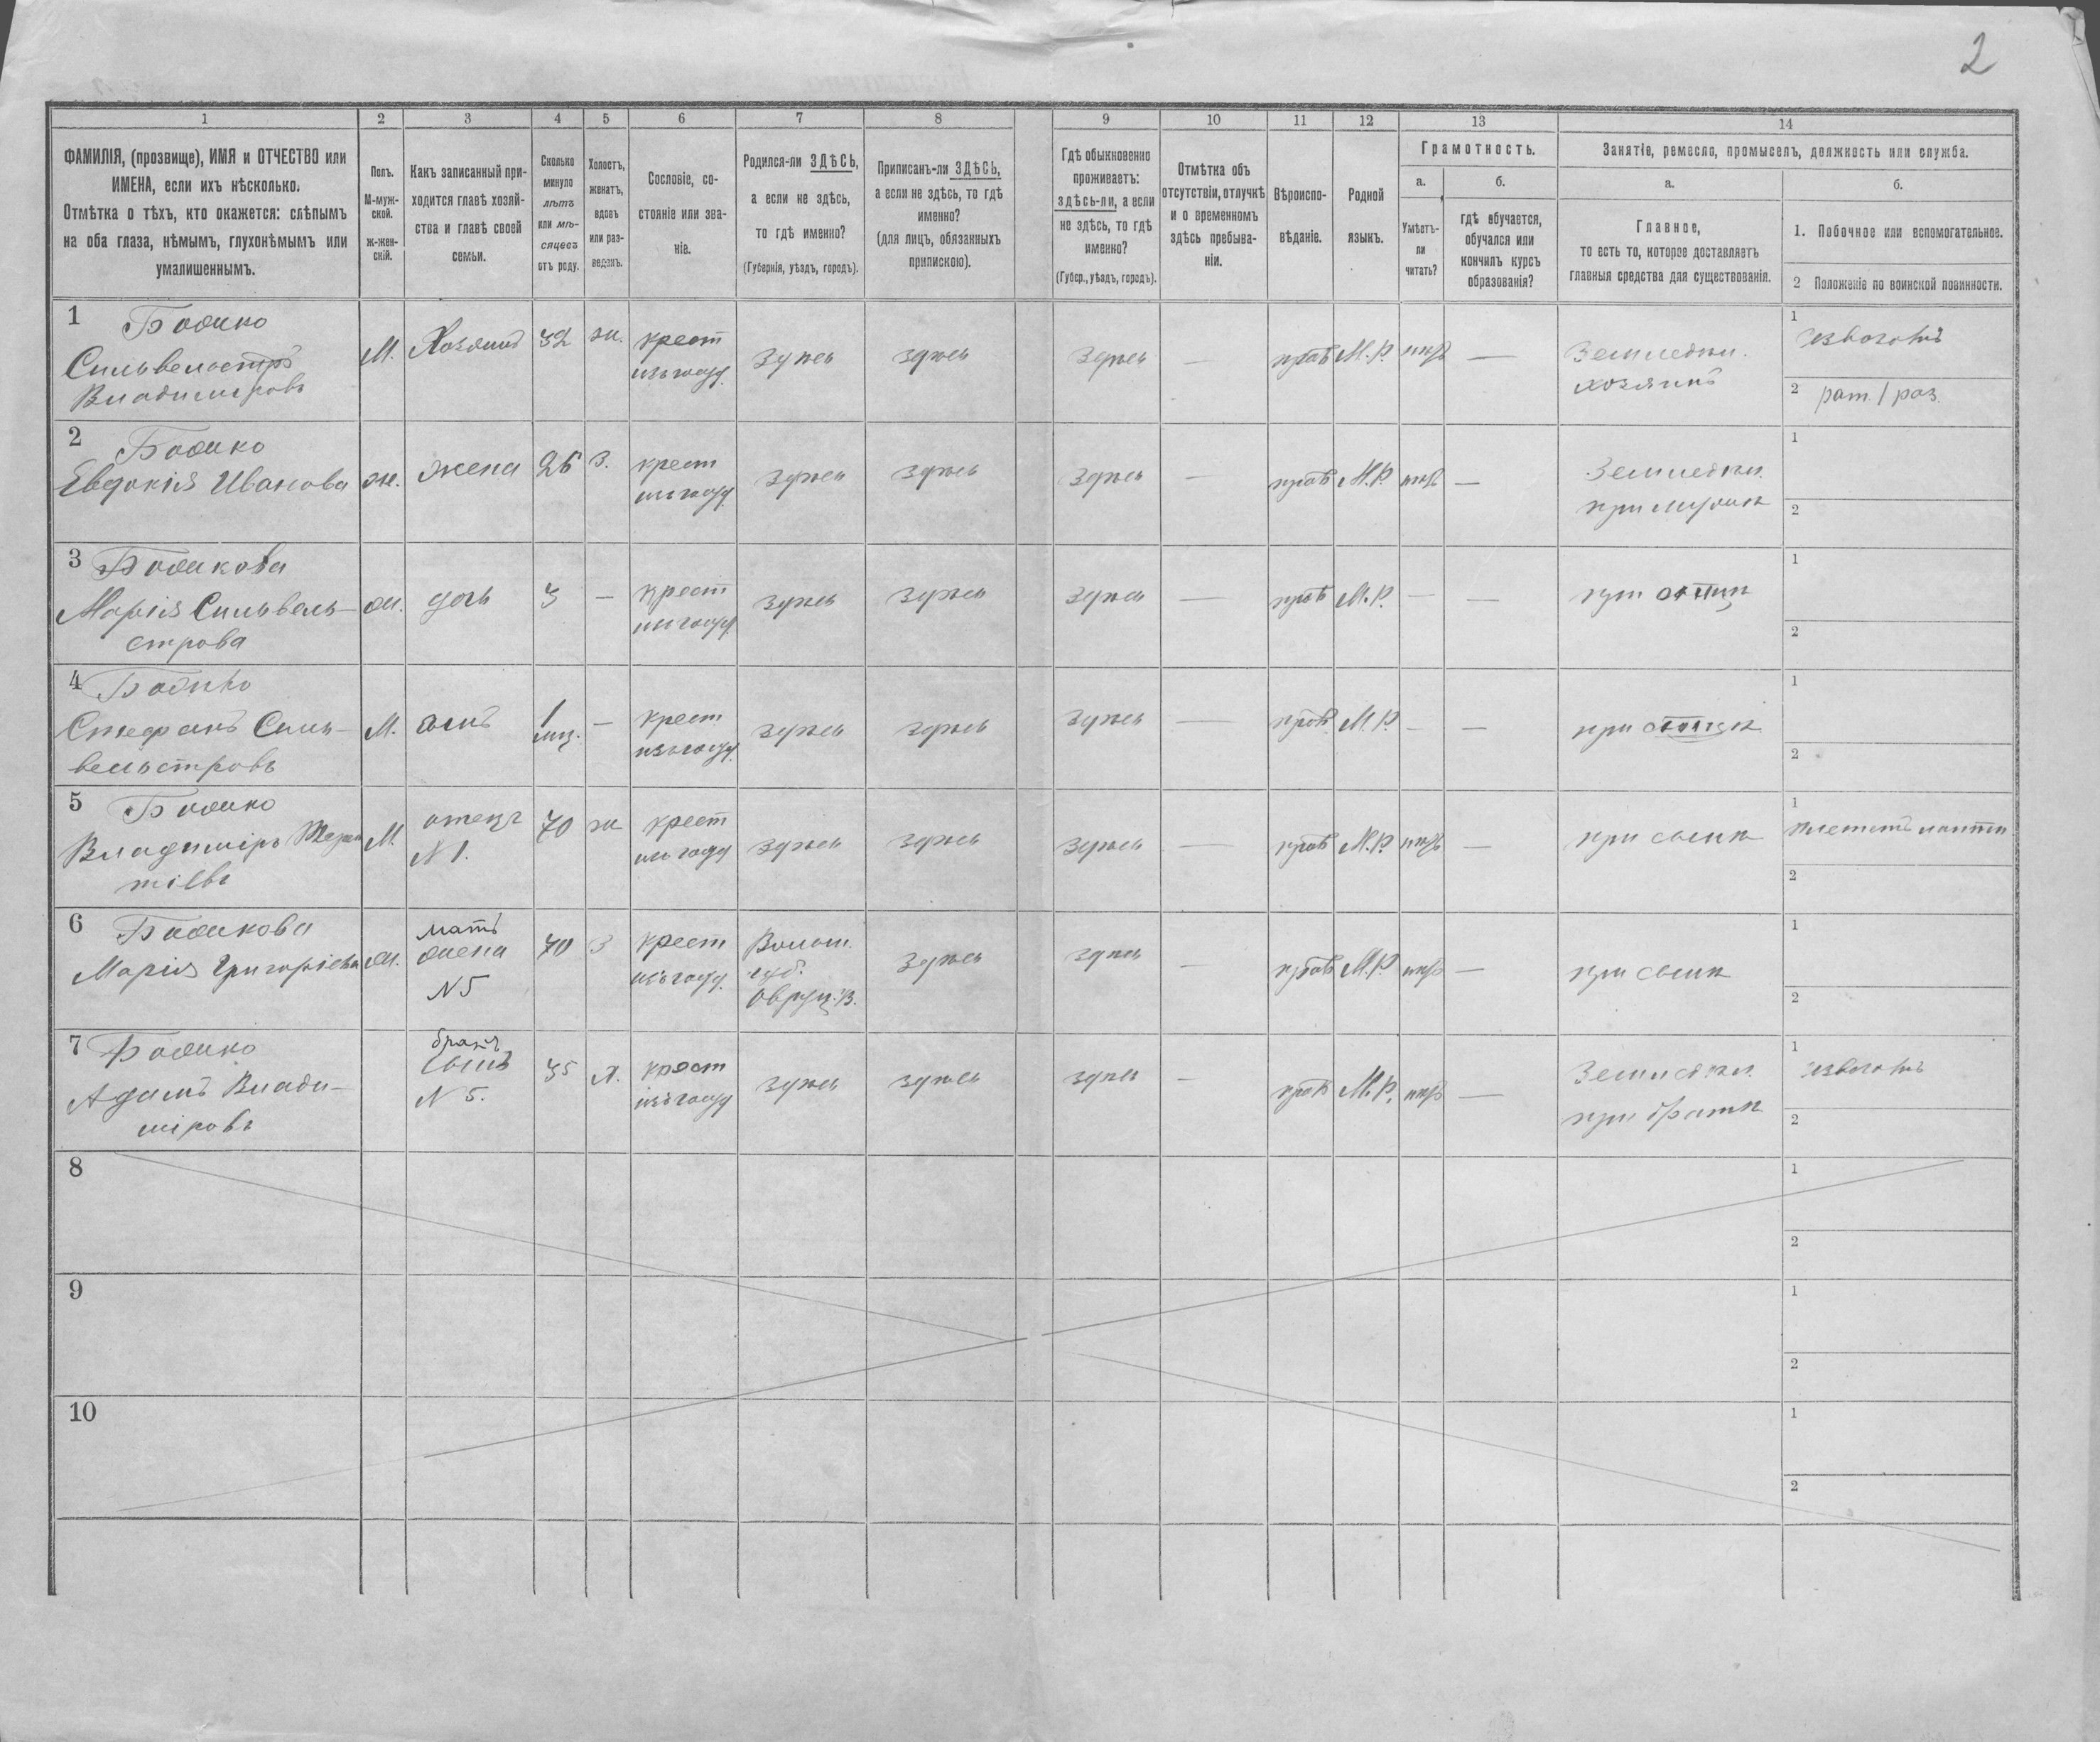 2
1 2 3 4 5 6 7 8 9 10 11 12 13 14
ФАМИЛІЯ, (прозвище), ИМЯ и ОТЧЕСТВО или
ИМЕНА, если ихъ нѣсколько.
Отмѣтка о тѣхъ, кто окажется: слѣпымъ
на оба глаза, нѣмымъ, глухонѣмымъ или
умалишеннымъ.
Полъ.
М-муж-
ской.
ж-жен-
скій.
Какъ записанный при-
ходится главѣ хозяй-
ства и главѣ своей
семьи.
Сколько
минуло
лѣтъ
или мѣ-
сяцевъ
отъ роду.
Холостъ,
женатъ,
вдовъ
или раз-
веденъ.
Сословіе, со-
стояніе или зва-
ніе.
Родился-ли ЗДѢСЬ,
а если не здѣсь,
то гдѣ именно?
(Губернія, уѣздъ, городъ).
Приписанъ-ли ЗДѢСЬ,
а если не здѣсь, то гдѣ
именно?
(для лицъ, обязанныхъ
припискою).
Гдѣ обыкновенно
проживаетъ:
здѣсь-ли, а если
не здѣсь, то гдѣ
именно?
(Губер., уѣздъ, городъ).
Отмѣтка объ
отсутствіи, отлучкѣ
и о временномъ
здѣсь пребыва-
ніи.
Вѣроиспо-
вѣданіе.
Родной
языкъ.
Грамотность.
а.
Умѣетъ-
ли
читать?
б.
гдѣ обучается,
обучался или
кончилъ курсъ
образованія?
Занятіе, ремесло, промыселъ, должность или служба.
а.
Главное,
то есть то, которое доставляетъ
главныя средства для существованія.
б.
1. Побочное или вспомогательное.
2 Положеніе по воинской повинности.
1
Сильвестръ
Владиміровъ
М. Хозяинъ 32 ж. крест здѣсь здѣсь здѣсь — прав М.Р. — Земледѣл.
хозяинъ
1 извозомъ
2 рат. 1 раз.
2
Евдокія Иванова
ж. жена 26 з. крест здѣсь здѣсь здѣсь — прав М.Р. — Земледѣл.
при мужѣ
1
2
3
Марія Сильве-
строва
ж. дочь 3 — крест здѣсь здѣсь здѣсь — прав М.Р. — — при отцѣ
1
2
4
Стефанъ Силь-
вестровъ
М. сынъ 1
мѣс. — крест здѣсь здѣсь здѣсь — прав. М.Р. — — при отцѣ
1
2
5
Владиміръ
М. отецъ
N 1. 70 ж крест здѣсь здѣсь здѣсь — прав М.Р. — при сынѣ
1 плететъ лапти
2
6
Марія Григоріева
ж. мать
жена
N 5 70 З крест Волын.
губ.
Овруч. у. здѣсь здѣсь — прав М.Р. — при сынѣ
1
2
7
Адамъ Влади-
міровъ
братъ
сынъ
N 5. 35 х. крест здѣсь здѣсь здѣсь — прав М.Р. — Земледѣл.
при братѣ
1 извозомъ
2
8
1
2
9
1
2
10
1
2